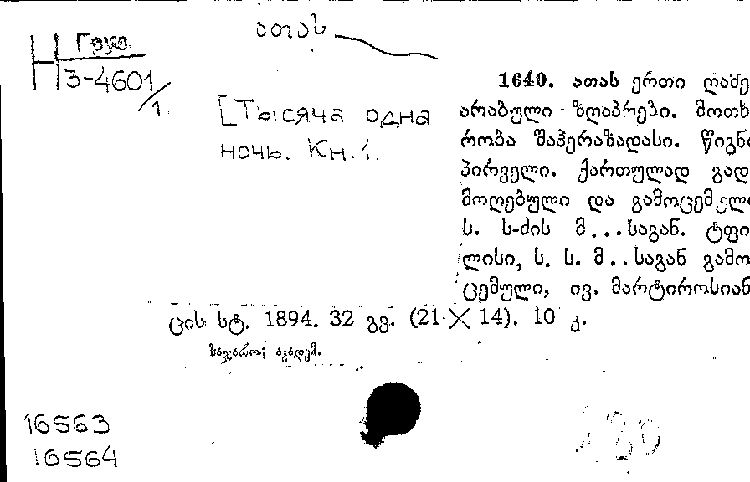 Груз.
Н 3-4601/1.
ათას
[Тысяча одна
ночь. Кн. 1.
1640. ათას ერთი ღამე
არაბული ზღაპრები. მოთხ
რობა შაჰერაზადასი. წიგნი
პირველი. ქართულად გად
მოღებული და გამოცემული
ს. ს-ძის მ...საგან. ტფი
ლისი, ს. ს. მ..საგან გამო
ცემული, ივ. მარტიროსიან
ცის სტ. 1894. 32 გვ. (21×14). 10 კ.
16563
16564